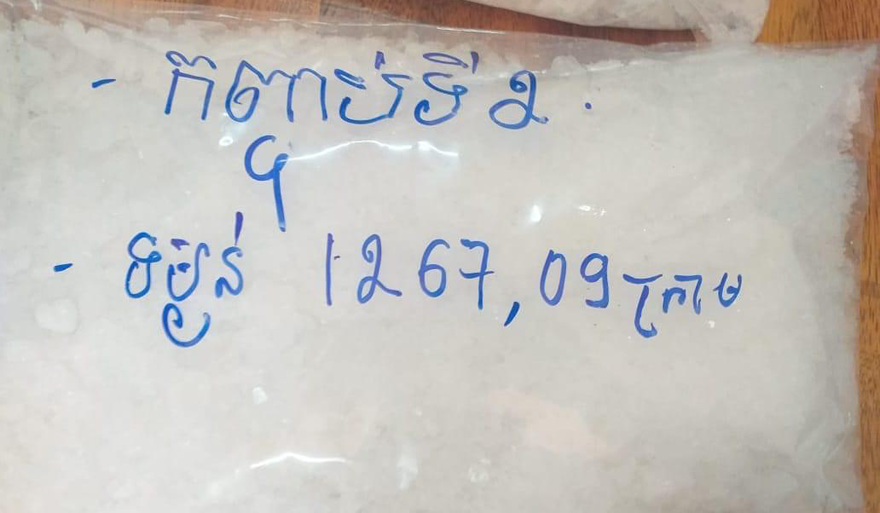 - កញ្ចប់ទី ២.
- ទម្ងន់ 1267,09 ក្រាម